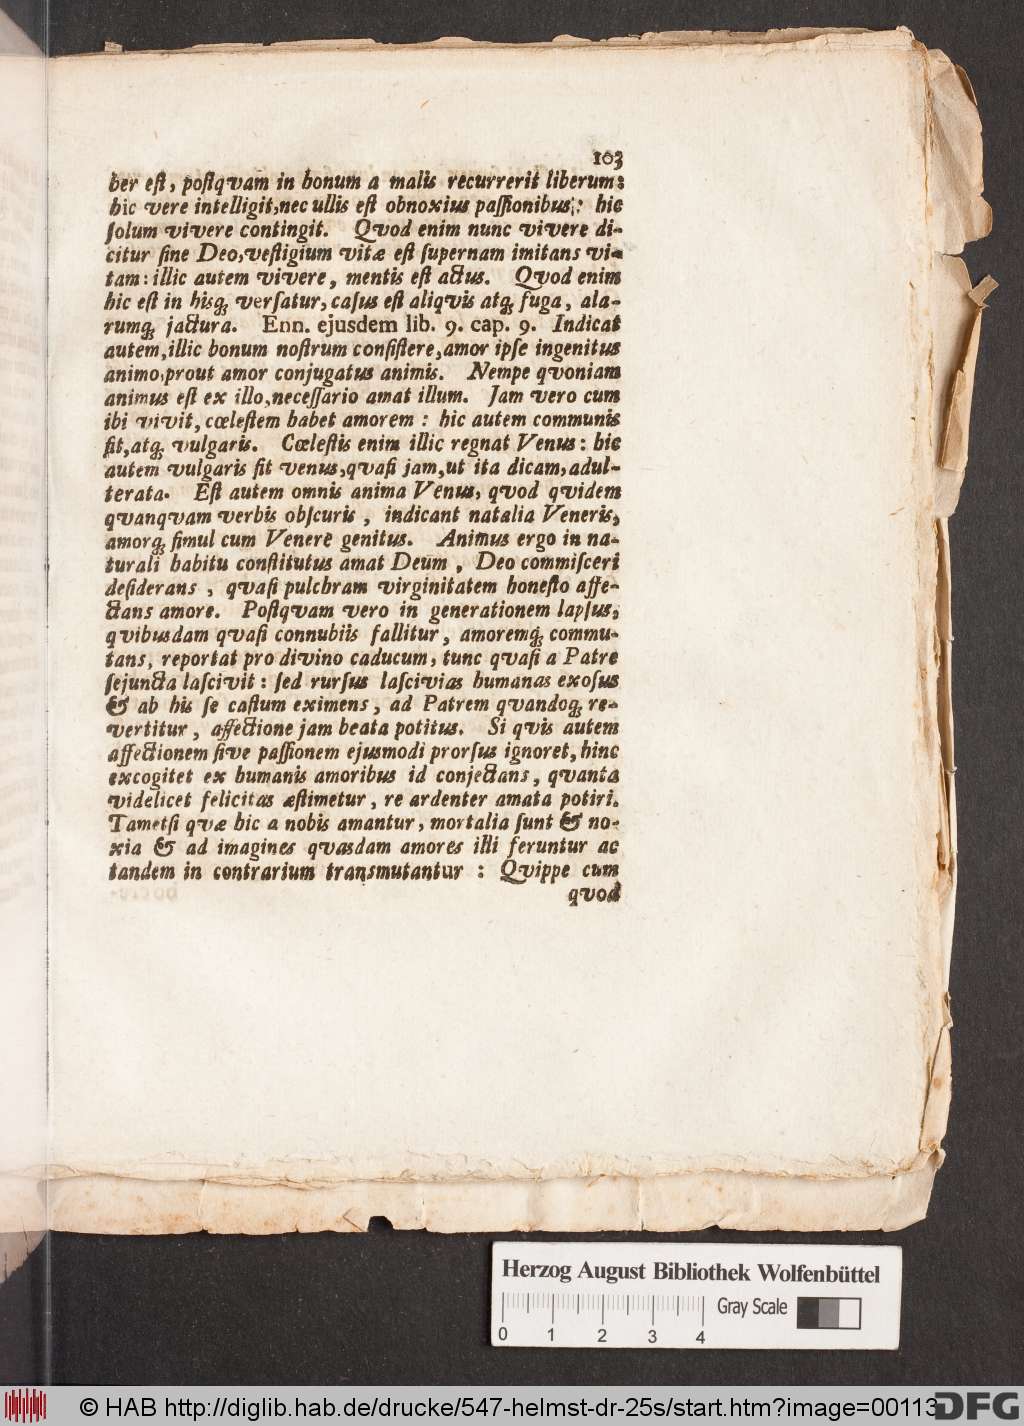 103
ber eſt, poſtqvam in bonum a malis recurrerit liberum:
hic vere intelligit, nec ullis eſt obnoxius paſſionibus: hic
ſolum vivere contingit. Qvod enim nunc vivere di-
citur ſine Deo, veſtigium vitæ eſt ſupernam imitans vi-
tam: illic autem vivere, mentis eſt actus. Qvod enim
hic eſt in hisq; verſatur, caſus eſt aliqvis atq; fuga, ala-
rumq; jactura. Enn. ejusdem lib. 9. cap. 9. Indicat
autem, illic bonum noſtrum conſiſtere, amor ipſe ingenitus
animo, prout amor conjugatus animis. Nempe qvoniam
animus eſt ex illo, neceſſario amat illum. Jam vero cum
ibi vivit, cœleſtem habet amorem: hic autem communis
fit, atq; vulgaris. Cœleſtis enim illic regnat Venus: hic
autem vulgaris fit venus, qvaſi jam, ut ita dicam, adul-
terata. Eſt autem omnis anima Venus, qvod qvidem
qvanqvam verbis obſcuris, indicant natalia Veneris,
amorq; ſimul cum Venere genitus. Animus ergo in na-
turali habitu conſtitutus amat Deum, Deo commiſceri
deſiderans, qvaſi pulchram virginitatem honeſto affe-
ctans amore. Poſtqvam vero in generationem lapſus,
qvibusdam qvaſi connubiis fallitur, amoremq; commu-
tans, reportat pro divino caducum, tunc qvaſi a Patre
ſejuncta laſcivit: ſed rurſus laſcivias humanas exoſus
& ab his ſe caſtum eximens, ad Patrem qvandoq; re-
vertitur, affectione jam beata potitus. Si qvis autem
affectionem ſive paſſionem ejusmodi prorſus ignoret, hinc
excogitet ex humanis amoribus id conjectans, qvanta
videlicet felicitas æſtimetur, re ardenter amata potiri.
Tametſi qvæ hic a nobis amantur, mortalia ſunt & no-
xia & ad imagines qvasdam amores illi feruntur ac
tandem in contrarium transmutantur: Qvippe cum
qvod
Herzog August Bibliothek Wolfenbüttel
Gray Scale
0 1 2 3 4
© HAB http://diglib.hab.de/drucke/547-helmst-dr-25s/start.htm?image=00113
DFG